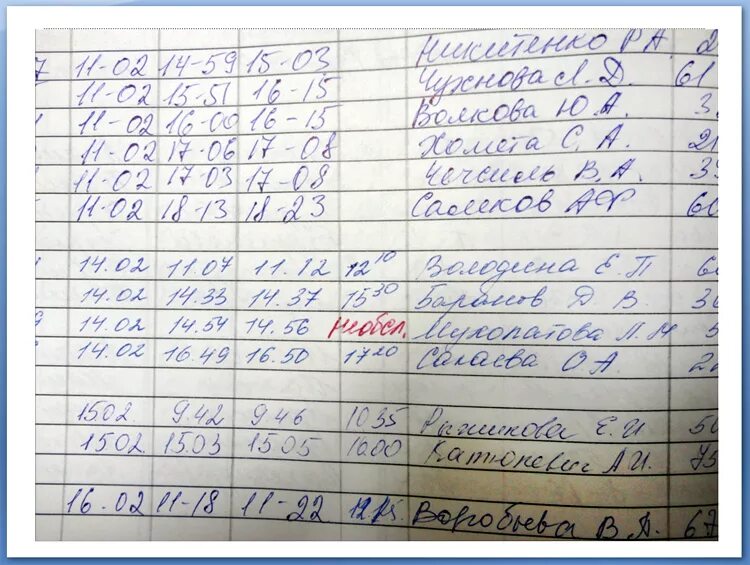 7 11-02 14-59 15-03 Никитенко Р А. 2
11-02 15-51 16-15 Чухнова Л. Д. 61
11-02 16-00 16-15 Волкова Ю. А. 3
11-02 17-06 17-08 Хомета С. А. 21
11-02 17-03 17-08 В. А. 33
11-02 18-13 18-23 Саликов АФ 60
14.02 11.07 11.12 12 10 Володина Е. П 6
14.02 14.33 14.37 15 30 Баранов Д. В. 3
14.02 14.54 14.56 необсл. Мухопатова Л. Н 5
14.02 16.49 16.50 17 20 Сакаева О А. 2
15.02. 9.42 9.46 10 35 Рыжикова Е. И 50
15.02 15.03 15.05 16.00 А.И. 75
16.02 11-18 11-22 12 15. Воробьева В. А. 67